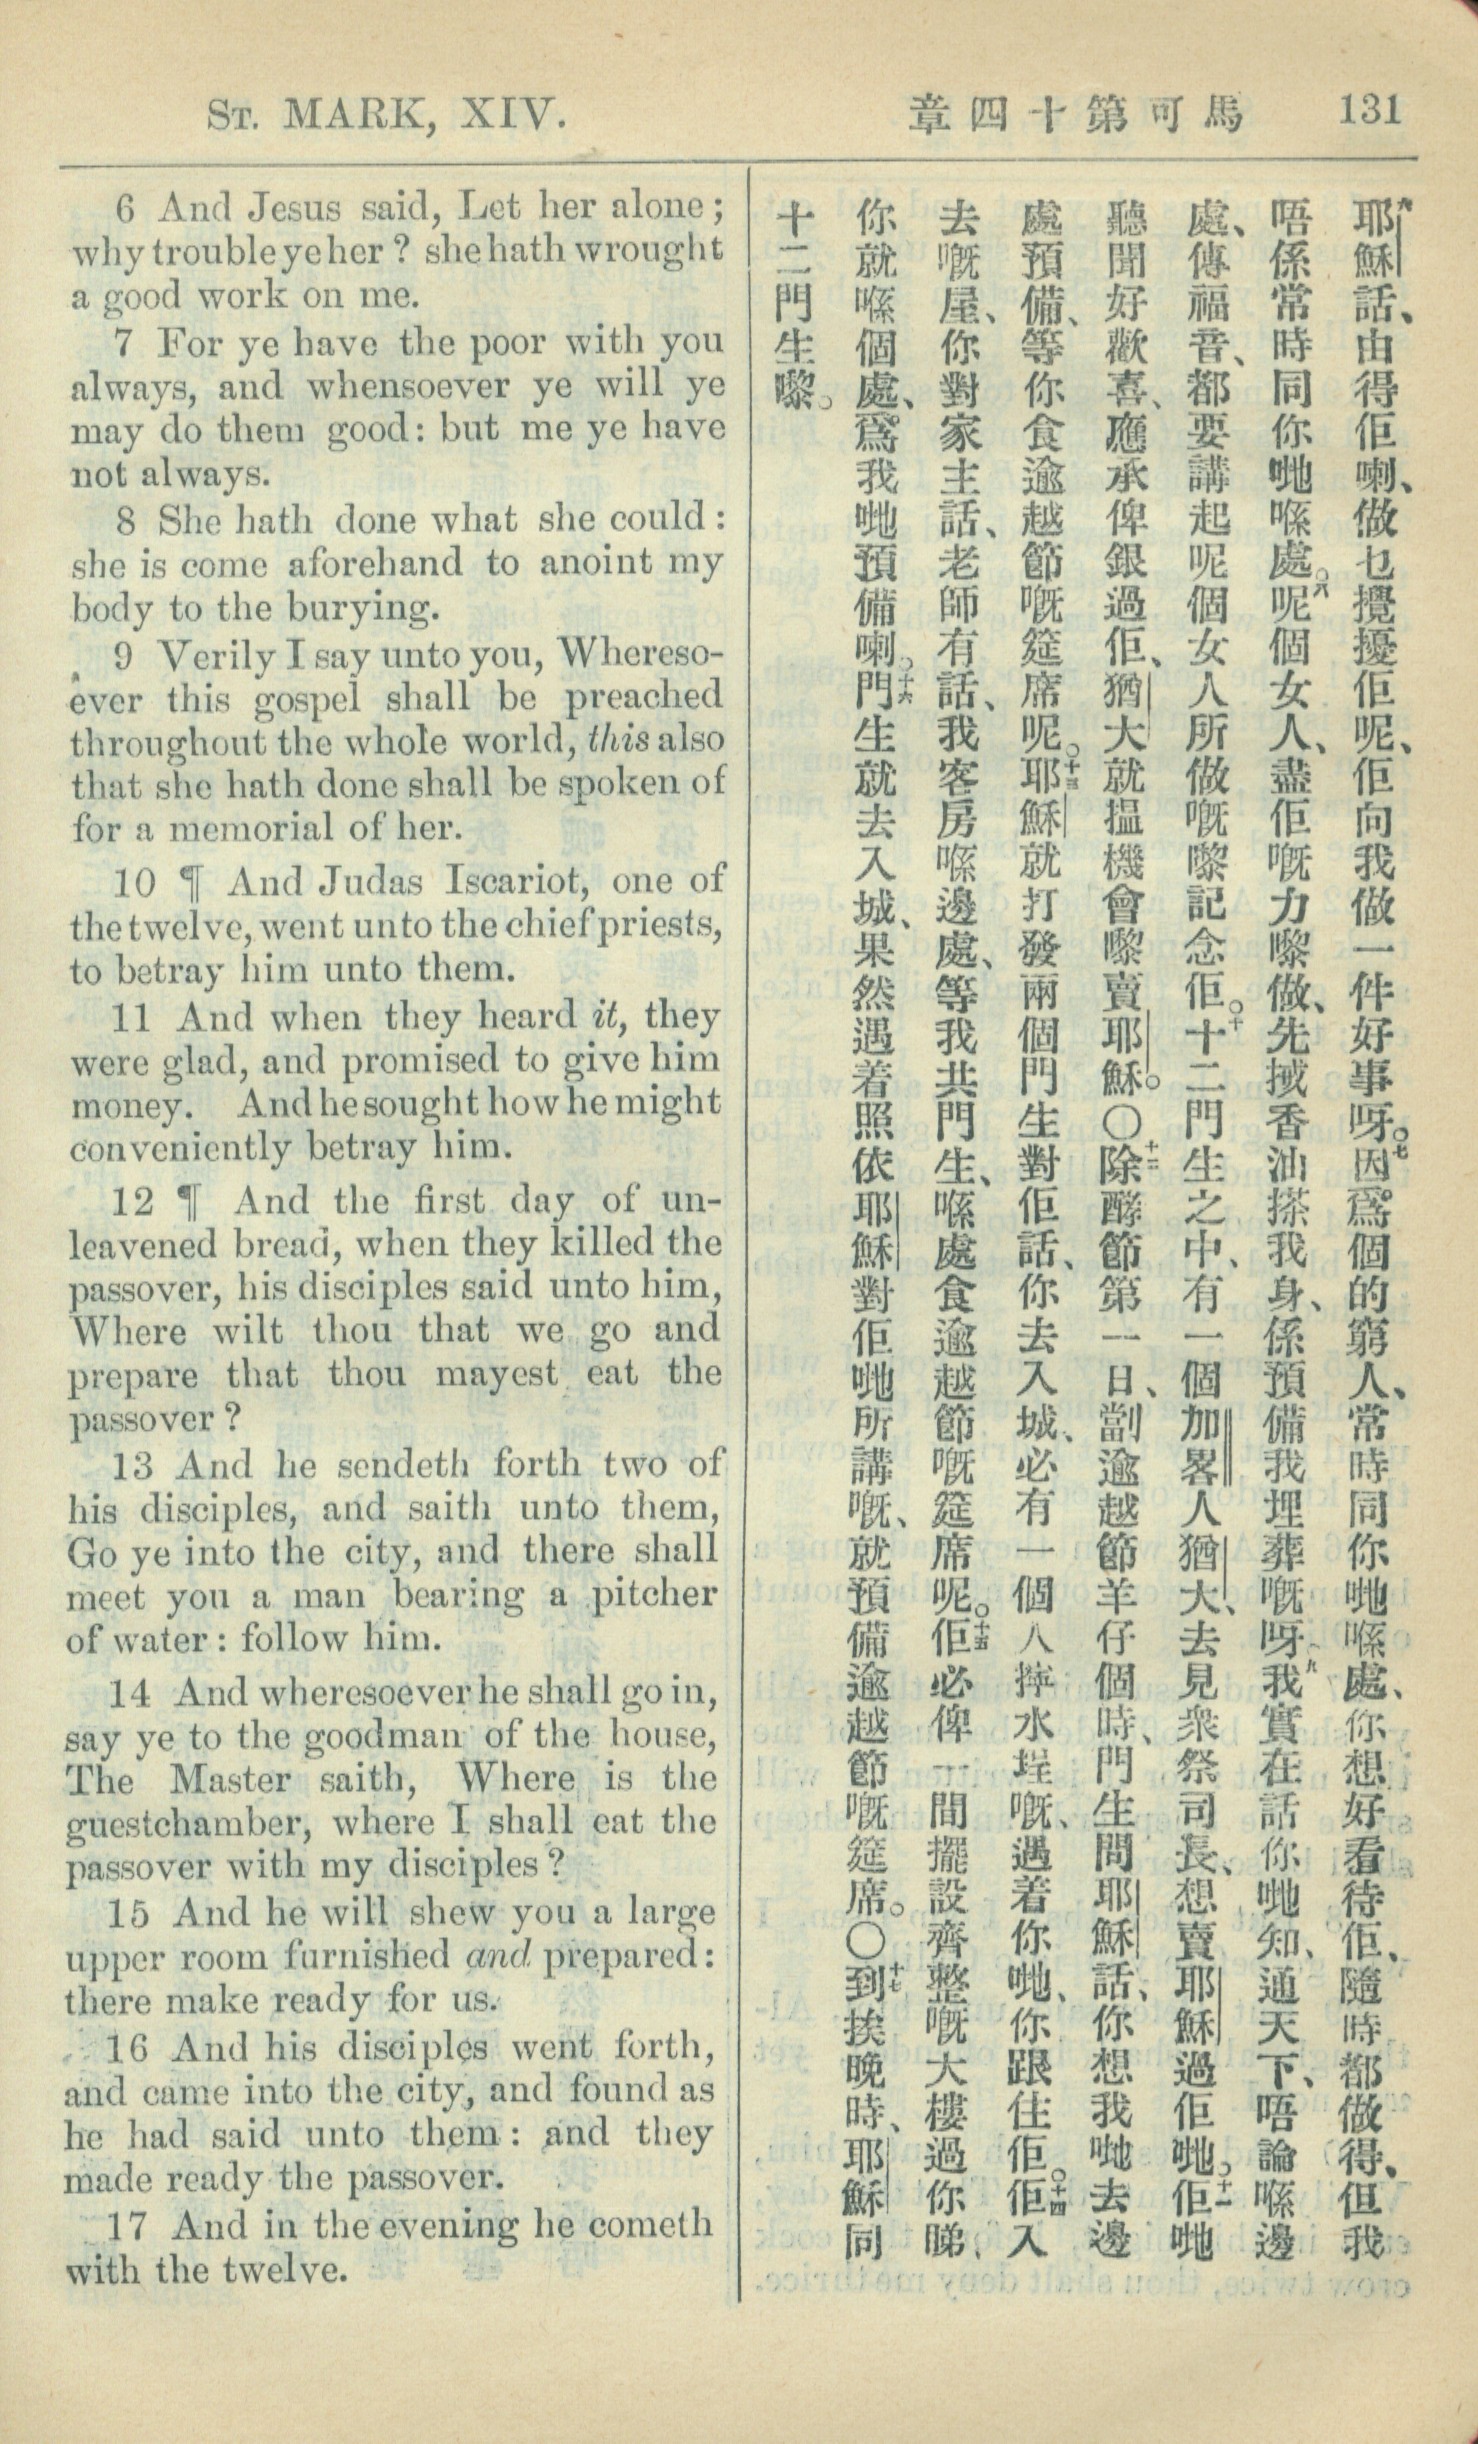 ST. MARK, XIV.
章四十第可馬 131
6 And Jesus said, Let her alone;
why trouble ye her? she hath wrought
a good work on me.
7 For ye have the poor with you
always, and whensoever ye will ye
may do them good: but me ye have
not always.
8 She hath done what she could:
she is come aforehand to anoint my
body to the burying.
9 Verily I say unto you, Whereso-
ever this gospel shall be preached
throughout the whole world, this also
that she hath done shall be spoken of
for a memorial of her.
10 ¶ And Judas Iscariot, one of
the twelve, went unto the chief priests,
to betray him unto them.
11 And when they heard it, they
were glad, and promised to give him
money. And he sought how he might
conveniently betray him.
12 ¶ And the first day of un-
leavened bread, when they killed the
passover, his disciples said unto him,
Where wilt thou that we go and
prepare that thou mayest eat the
passover?
13 And he sendeth forth two of
his disciples, and saith unto them,
Go ye into the city, and there shall
meet you a man bearing a pitcher
of water: follow him.
14 And wheresoever he shall go in,
say ye to the goodman of the house,
The Master saith, Where is the
guestchamber, where I shall eat the
passover with my disciples?
15 And he will shew you a large
upper room furnished and prepared:
there make ready for us.
16 And his disciples went forth,
and came into the city, and found as
he had said unto them: and they
made ready the passover.
17 And in the evening he cometh
with the twelve.
六耶穌話、由得佢喇、做乜攪擾佢呢、佢向我做一件好事呀。七因爲個的窮人、常時同你哋喺處、你想好看待佢、隨時都做得、但我
唔係常時同你哋喺處。八呢個女人、盡佢嘅力嚟做、先搣香油搽我身、係預備我埋葬嘅呀、九我實在話你哋知、通天下、唔論喺邊
處、傳福音、都要講起呢個女人所做嘅嚟記念佢。十十二門生之中、有一個加畧人猶大、去見衆祭司長、想賣耶穌過佢哋。十一佢哋
聽聞好歡喜、應承俾銀過佢、猶大就搵機會嚟賣耶穌。〇十二除酵節第一日、劏逾越節羊仔個時、門生問耶穌話、你想我哋去邊
處預備、等你食逾越節嘅筵席呢。十三耶穌就打發兩個門生對佢話、你去入城、必有一個人擰水埕嘅、遇着你哋、你跟住佢。十四佢入
去嘅屋、你對家主話、老師有話、我客房喺邊處、等我共門生、喺處食逾越節嘅筵席呢。十五佢必俾一間擺設齊整嘅大樓過你睇、
你就喺個處、爲我哋預備喇。十六門生就去入城、果然遇着照依耶穌對佢哋所講嘅、就預備逾越節嘅筵席。〇十七到挨晚時、耶穌同
十二門生嚟。